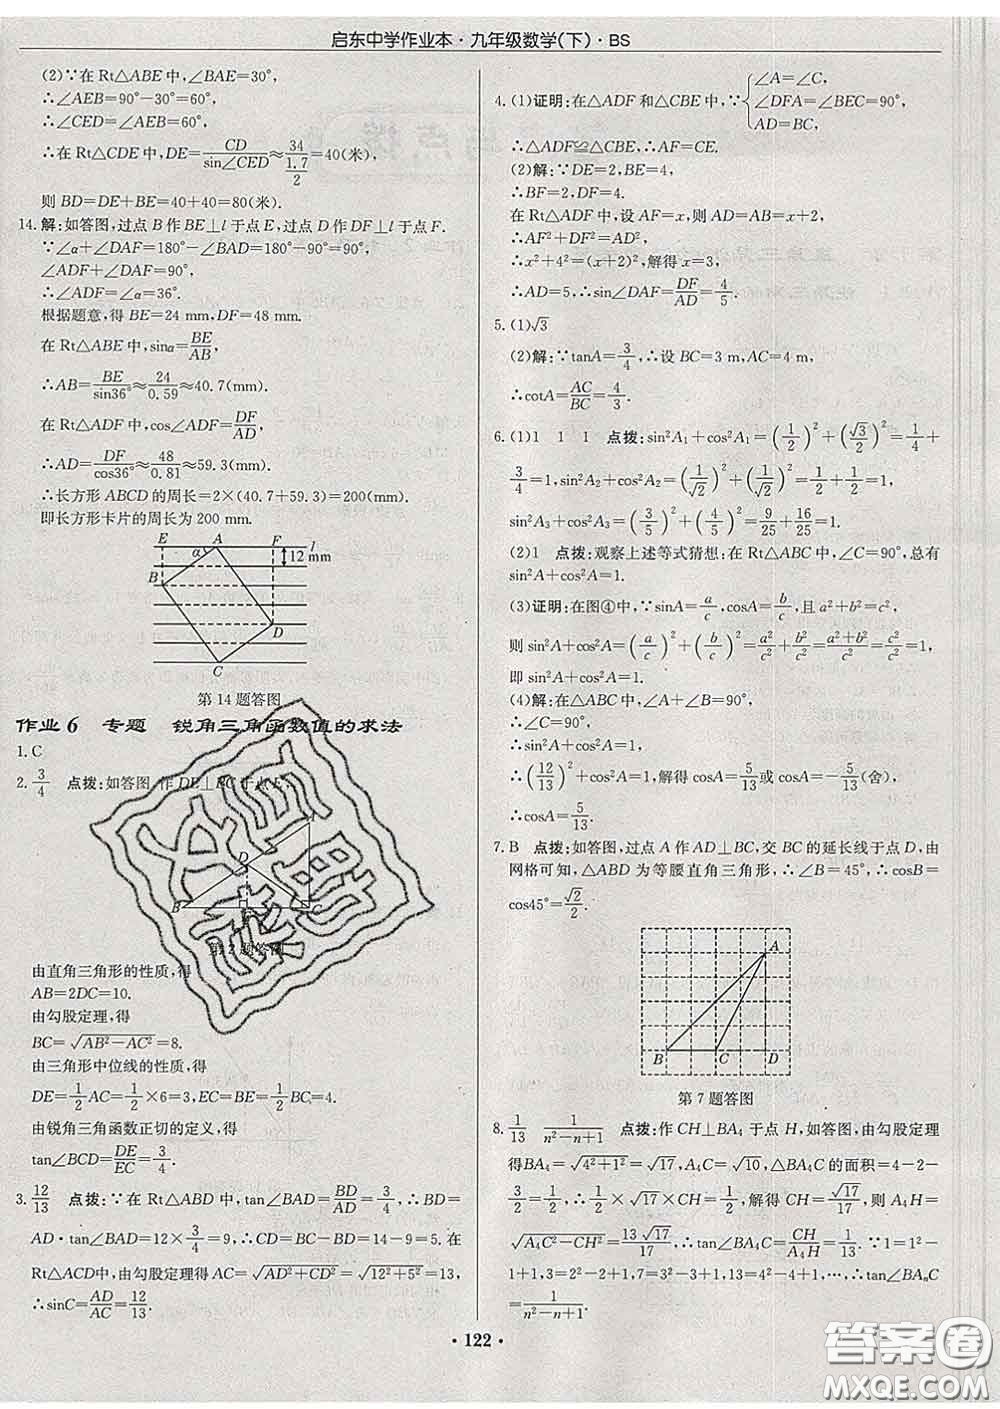 启东中学作业本·九年级数学(下)·BS
(2)∵在 Rt△ABE 中,∠BAE=30°,
∴∠AEB=90°-30°=60°,
∴∠CED=∠AEB=60°,
∴在 Rt△CDE 中,DE=CD/sin∠CED≈34/(1.7/2)=40(米),
则 BD=DE+BE=40+40=80(米).
14.解:如答图,过点 B 作 BE⊥l 于点 E,过点 D 作 DF⊥l 于点 F.
∵∠α+∠DAF=180°-∠BAD=180°-90°=90°,
∠ADF+∠DAF=90°,
∴∠ADF=∠α=36°.
根据题意,得 BE=24 mm,DF=48 mm.
在 Rt△ABE 中,sinα=BE/AB,
∴AB=BE/sin36°≈24/0.59≈40.7(mm).
在 Rt△ADF 中,cos∠ADF=DF/AD,
∴AD=DF/cos36°≈48/0.81≈59.3(mm).
∴长方形 ABCD 的周长=2×(40.7+59.3)=200(mm).
即长方形卡片的周长为 200 mm.
E A F l
α 12 mm
B
D
C
第 14 题答图
作业 6 专题 锐角三角函数值的求法
1.C
2.3/4 点拨:如答图,作 DE⊥BC于点E.
A
D
B E C
第 2 题答图
由直角三角形的性质,得
AB=2DC=10.
由勾股定理,得
BC=√(AB²-AC²)=8.
由三角形中位线的性质,得
DE=1/2AC=1/2×6=3,EC=BE=1/2BC=4.
由锐角三角函数正切的定义,得
tan∠BCD=DE/EC=3/4.
3.12/13 点拨:∵在 Rt△ABD 中,tan∠BAD=BD/AD=3/4,∴BD=
AD·tan∠BAD=12×3/4=9,∴CD=BC-BD=14-9=5.在
Rt△ACD中,由勾股定理得 AC=√(AD²+CD²)=√(12²+5²)=13,
∴sinC=AD/AC=12/13.
4.(1)证明:在△ADF 和△CBE 中,∵{∠A=∠C,
∠DFA=∠BEC=90°,
AD=BC,
∴△ADF≌△CBE,∴AF=CE.
(2)解:∵DE=2,BE=4,
∴BF=2,DF=4.
在 Rt△ADF 中,设 AF=x,则 AD=AB=x+2,
∴AF²+DF²=AD²,
∴x²+4²=(x+2)²,解得 x=3.
∴AD=5,∴sin∠DAF=DF/AD=4/5.
5.(1)√3
(2)解:∵tanA=3/4,∴设 BC=3 m,AC=4 m,
∴cotA=AC/BC=4/3.
6.(1)1 1 1 点拨:sin²A₁+cos²A₁=(1/2)²+(√3/2)²=1/4+
3/4=1,sin²A₂+cos²A₂=(1/√2)²+(1/√2)²=1/2+1/2=1,
sin²A₃+cos²A₃=(3/5)²+(4/5)²=9/25+16/25=1.
(2)1 点拨:观察上述等式猜想:在 Rt△ABC 中,∠C=90°,总有
sin²A+cos²A=1.
(3)证明:在图④中,∵sinA=a/c,cosA=b/c,且 a²+b²=c²,
则 sin²A+cos²A=(a/c)²+(b/c)²=a²/c²+b²/c²=(a²+b²)/c²=c²/c²=1,
即 sin²A+cos²A=1.
(4)解:在△ABC 中,∠A+∠B=90°,
∴∠C=90°.
∵sin²A+cos²A=1,
∴(12/13)²+cos²A=1,解得 cosA=5/13或 cosA=-5/13(舍),
∴cosA=5/13.
7.B 点拨:如答图,过点 A 作 AD⊥BC,交 BC 的延长线于点 D,由
网格可知,△ABD 为等腰直角三角形,∴∠B=45°,∴cosB=
cos45°=√2/2.
A
B C D
第 7 题答图
8.1/13 1/(n²-n+1) 点拨:作 CH⊥BA₄于点 H,如答图,由勾股定理
得BA₄=√(4²+1²)=√17,A₄C=√10,△BA₄C 的面积=4-2-
3/2=1/2,∴1/2×√17×CH=1/2,解得 CH=√17/17,则 A₄H=
√(A₄C²-CH²)=13√17/17,∴tan∠BA₄C=CH/A₄H=1/13.∵1=1²-
1+1,3=2²-2+1,7=3²-3+1,13=4²-4+1,…,∴tan∠BAₙC
=1/(n²-n+1).
·122·
答案圈
MXQE.COM